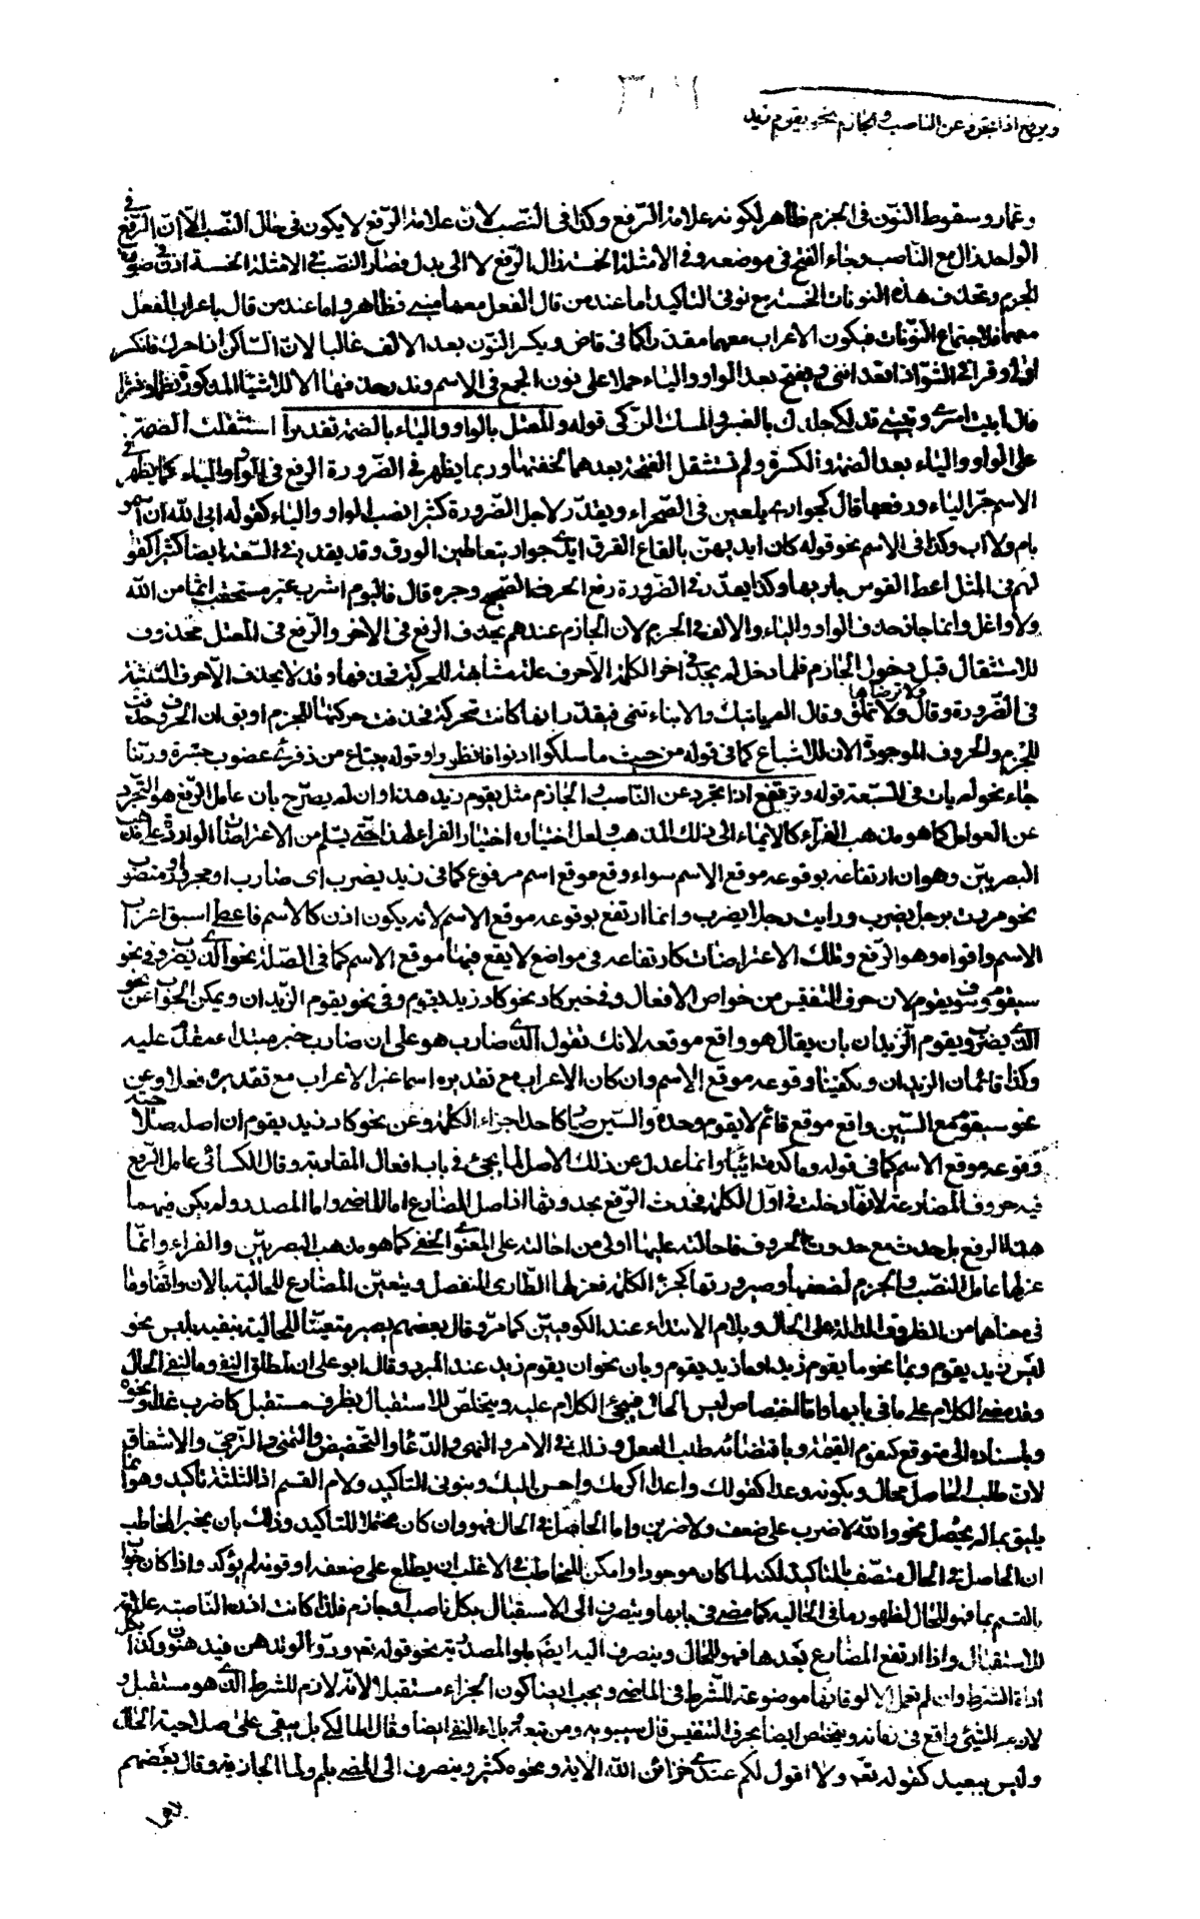 ويرتفع اذا تجرد عن الناصب والجازم نحو يقوم زيد
وسقوط النون فى الجزم ظاهر لكونه علامة الرفع وكذا فى النصب لان علامة الرفع لا يكون فى حال النصب الا ان الرفع فى
الواحد زال مع الناصب وجاء الفتح فى موضعه وفى الامثلة الخمسة زال الرفع لا الى بدل فصار النصب فى الامثلة الخمسة فى صورة
الجزم وتحذف هذه النونات الخمسة مع نونى التاكيد اما عند من قال الفعل معهما مبنى فظاهر واما عند من قال باعراب الفعل
معهما فلاجتماع النونات فيكون الاعراب معهما مقدرا كما فى قاض ويكسر النون بعد الالف غالبا لان الساكن اذا حرك فالكسر
اولى وقرئ فى الشواذ اتعداننى ويفتح بعد الواو والياء حملا على نون الجمع فى الاسم وندر حذفها لا للاشياء المذكورة نظما ونثرا
قال ابيت اسرى وتبيتى تدلكى جلدك بالعنبر والمسك الزكى قوله والمعتل بالواو والياء بالضمة تقديرا استثقلت الضمة
على الواو والياء بعد الضمة والكسرة ولم تستثقل الفتحة بعدهما لخفتها وربما يظهر فى الضرورة الرفع فى الواو والياء كما يظهر فى
الاسم جر الياء ورفعها قال كجوارى يلعبن فى الصحراء ويقدر لاجل الضرورة كثيرا نصب الواو والياء كقوله ابى الله ان اسمو
بام ولا اب وكذا فى الاسم نحو قوله كان ايديهن بالقاع القرق ايدى جوار يتعاطين الورق وقد يقدر فى السعة ايضا كثيرا كقو
لهم فى المثل اعط القوس باريها وكذا يقدر فى الضرورة رفع الحرف الصحيح وجره قال فاليوم اشرب غير مستحقب اثما من الله
ولا واغل وانما جاز حذف الواو والياء والالف فى الجزم لان الجازم عندهم يحذف الرفع فى الآخر والرفع فى المعتل محذوف
للاستثقال قبل دخول الجازم فلما دخل لم يجد فى اخر الكلمة الا حرف علة مشابهة للحركة فحذفها وقد لا يحذف الاحرف الثلثة
فى الضرورة وقال ولا ترضاها ولا تملق وقال الم ياتيك والانباء تنمى فيقدر انها كانت متحركة فحذفت حركتها للجزم او يق ان الحروف حذفت
للجزم والحروف الموجودة الان للاشباع كما فى قوله من حيث ما سلكوا ادنوا فانظور وقوله ينباع من ذفرى غضوب جسرة وربما
جاء نحو لم يات فى السعة قوله ويرتفع اذا تجرد عن الناصب والجازم مثل يقوم زيد هذا وان لم يصرح بان عامل الرفع هو التجرد
عن العوامل كما هو مذهب الفراء كالايماء الى ذلك المذهب ولعل اختياره اختيار الفراء لهذا حتى يسلم من الاعتراضات الواردة على مذهب
البصريين وهو ان ارتفاعه بوقوعه موقع الاسم سواء وقع موقع اسم مرفوع كما فى زيد يضرب اى ضارب او مجرور او منصوب
نحو مررت برجل يضرب ورايت رجلا يضرب وانما ارتفع بوقوعه موقع الاسم لانه يكون اذن كالاسم فاعطى اسبق اعراب
الاسم واقواه وهو الرفع وتلك الاعتراضات كارتفاعه فى مواضع لا يقع فيها موقع الاسم كما فى الصلة نحو الذى يضرب وفى نحو
سيقوم وسوف يقوم لان حرف التنفيس من خواص الافعال وفى خبر كاد نحو كاد زيد يقوم وفى نحو يقوم الزيدان ويمكن الجواب عن نحو
الذى يضرب ويقوم الزيدان بان يقال هو واقع موقعه لانك تقول الذى ضارب هو على ان ضارب خبر مبتداء مقدم عليه
وكذا قائمان الزيدان ويكفينا وقوعه موقع الاسم وان كان الاعراب مع تقديره اسما غير الاعراب مع تقديره فعلا وعن
نحو سيقوم مع السين واقع موقع قائم لا يقوم وحده والسين صار كاحد اجزاء الكلمة وعن نحو كاد زيد يقوم ان اصل صلاحية
وقوعه موقع الاسم كما فى قوله وما كدت آئبا وانما عدل عن ذلك الاصل لما يجئ فى باب افعال المقاربة وقال الكسائى عامل الرفع
فيه حروف المضارعة لانها دخلت فى اول الكلمة فحدث الرفع بحدوثها اذ اصل المضارع اما الماضى واما المصدر ولم يكن فيهما
هذا الرفع بل حدث مع حدوث الحروف فاحالته عليها اولى من احالته على المعنوى الخفى كما هو مذهب البصريين والفراء وانما
عزلها عامل النصب والجزم لضعفها وصيرورتها كجزء الكلمة فعزلها الطارى المنفصل ويتعين المضارع للحالية بالان وانفا وما
فى معناهما من الظروف الدالة على الحال وبلام الابتداء عند الكوفيين كما مر وقال بعضهم يصير متعينا للحالية بنفيه بليس نحو
ليس زيد يقوم وبما نحو ما يقوم زيد او ما زيد يقوم وبان نحو ان يقوم زيد عند المبرد وقال ابو على ان لمطلق النفى وما لنفى الحال
وقد مضى الكلام على ما فى بابها واما اختصاص ليس بالحال فيجئ الكلام عليه ويتخلص للاستقبال بظرف مستقبل كاضرب غدا ونحوه
وباسناده الى متوقع كيقوم القيمة وباقتضائه طلب الفعل وذلك فى الامر والنهى والدعاء والتحضيض والتمنى والترجى والاشفاق
لان طلب الحاصل محال وبكونه وعدا كقولك واعدا اكرمك واحسن اليك وبنونى التاكيد ولام القسم اذ الثلثة تاكيد وهو انما
يليق بما لم يحصل نحو والله لاضرب على ضعف ولاضربن واما الحاصل فى الحال فهو وان كان محتملا للتاكيد وذلك بان يخبر المخاطب
ان الحاصل فى الحال متصف بالتاكيد لكنه لما كان موجودا وامكن للمخاطب فى الاغلب ان يطلع على ضعفه او قوته لم يؤكد واذا كان جوابا
بالقسم بما فهو للحال لظهور ما فى الحالية كما مضى فى بابها ويتصرف الى الاستقبال بكل ناصب او جازم فلذا كانت اذن الناصبة علامة
للاستقبال واذا ارتفع المضارع بعدها فهو للحال وينصرف اليه ايضا بلو المصدرية نحو قوله تعم ودوا لو تدهن فيدهنون وكذا بكل
اداة الشرط وان لم تعمل الا لو فانها موضوعة للشرط فى الماضى ويجب ايضا كون الجزاء مستقبلا لانه لازم للشرط الذى هو مستقبل و
لازم الشئ واقع فى زمانه ويتخلص ايضا بحرف التنفيس قال سيبويه ومن تبعه وبلاء النفى ايضا وقال ابن مالك بل يبقى على صلاحية الحال
وليس ببعيد كقوله تعم ولا اقول لكم عندى خزائن الله الاية ونحوه كثير وينصرف الى المضى بلم ولما الجازمة وقال بعضهم